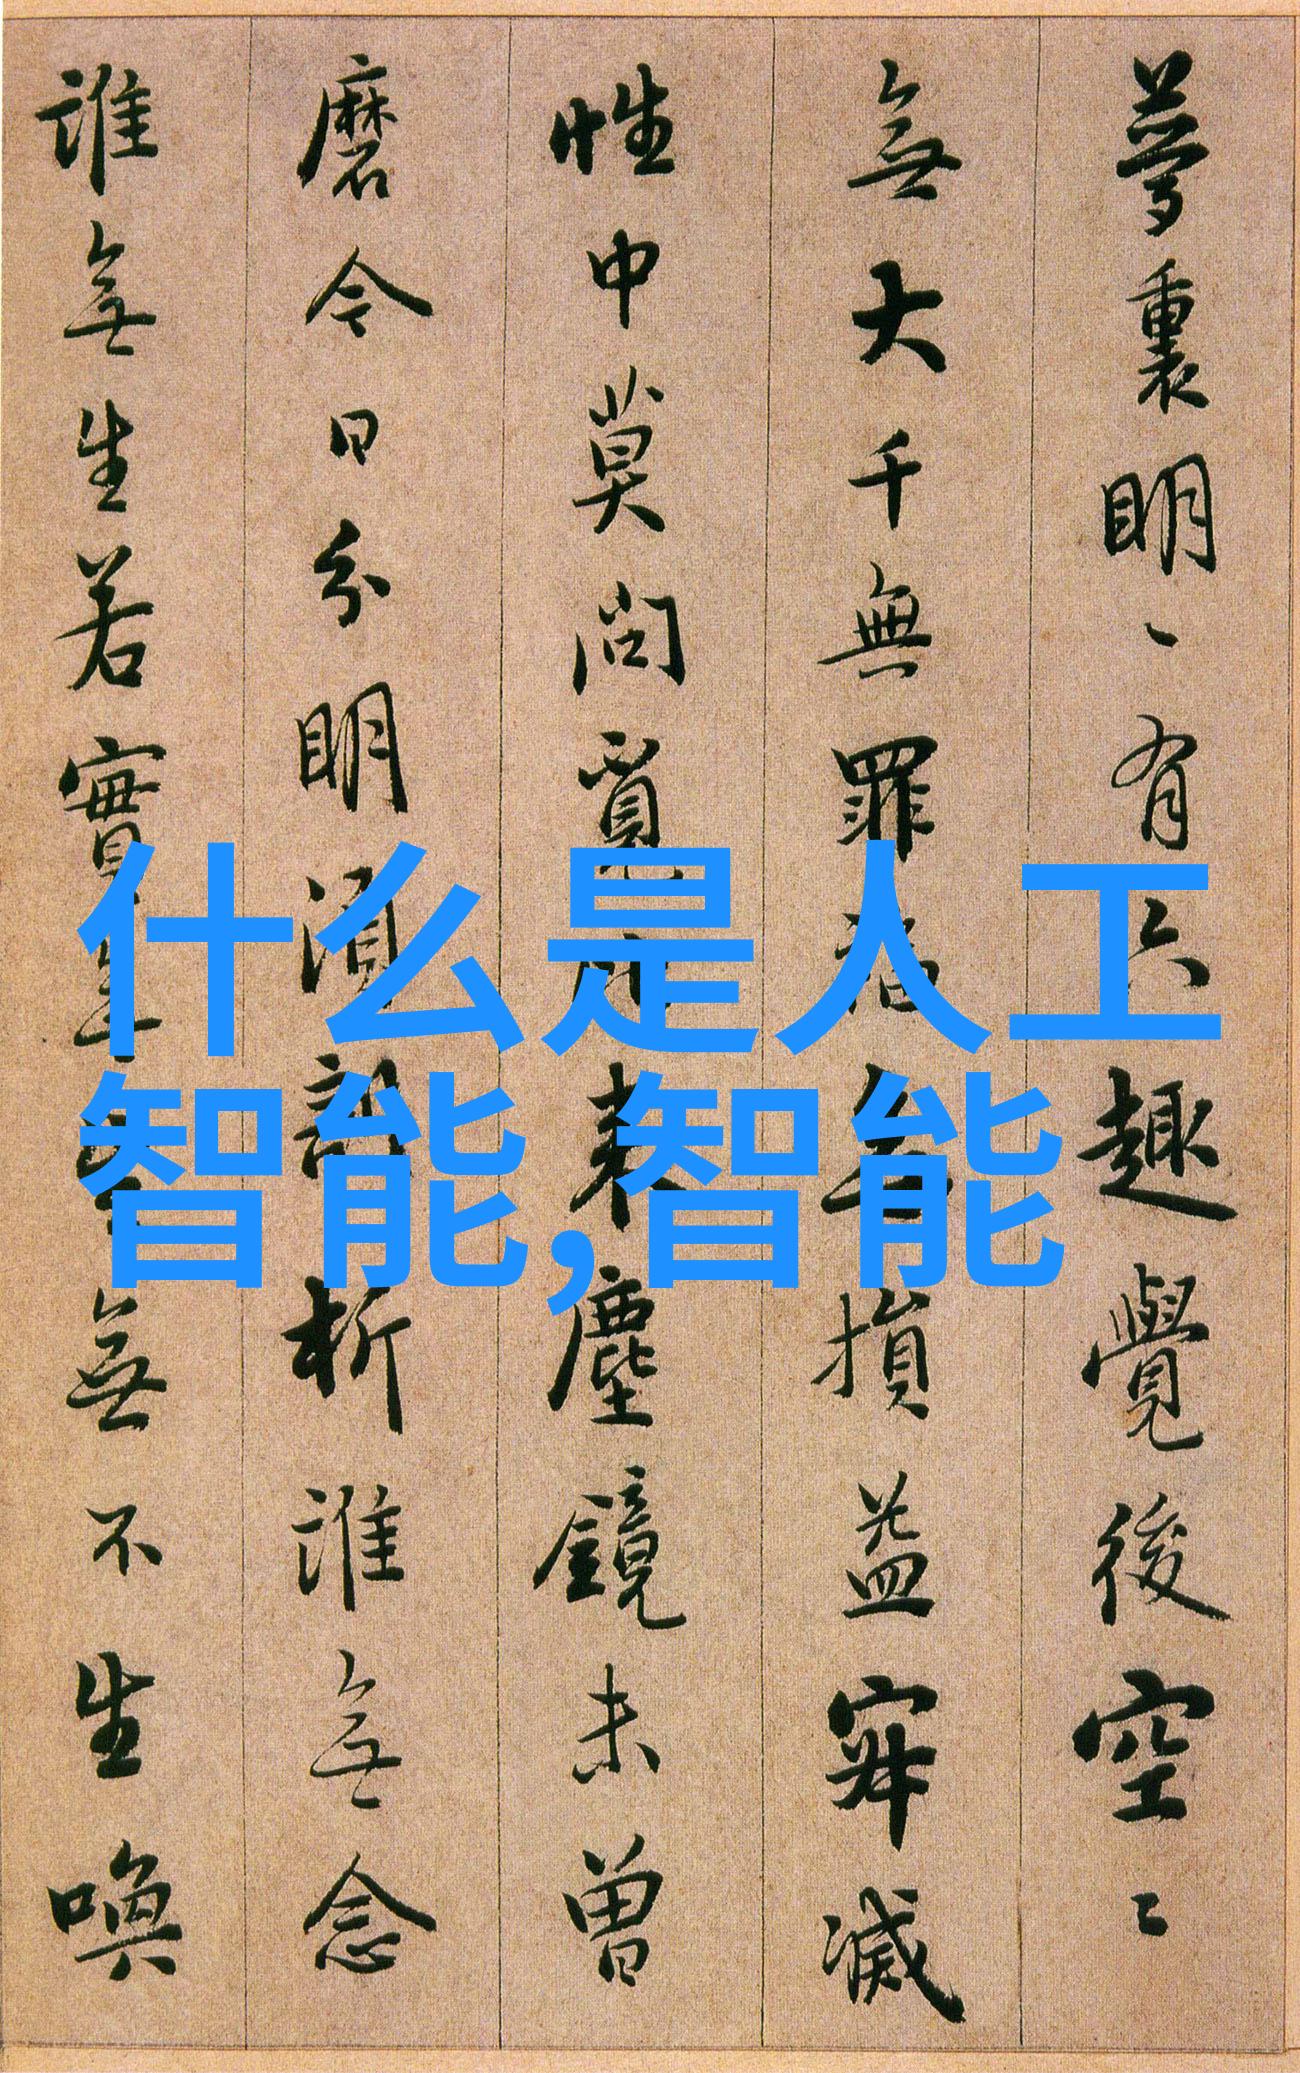 什么是人工
智能,智能
夢裏明〻有六趣覺後空〻
無大千無罪福無損益寂滅
性中莫問覓比來塵鏡未曾
磨今日分明須剖析誰無念
誰無生若實無生無不生喚